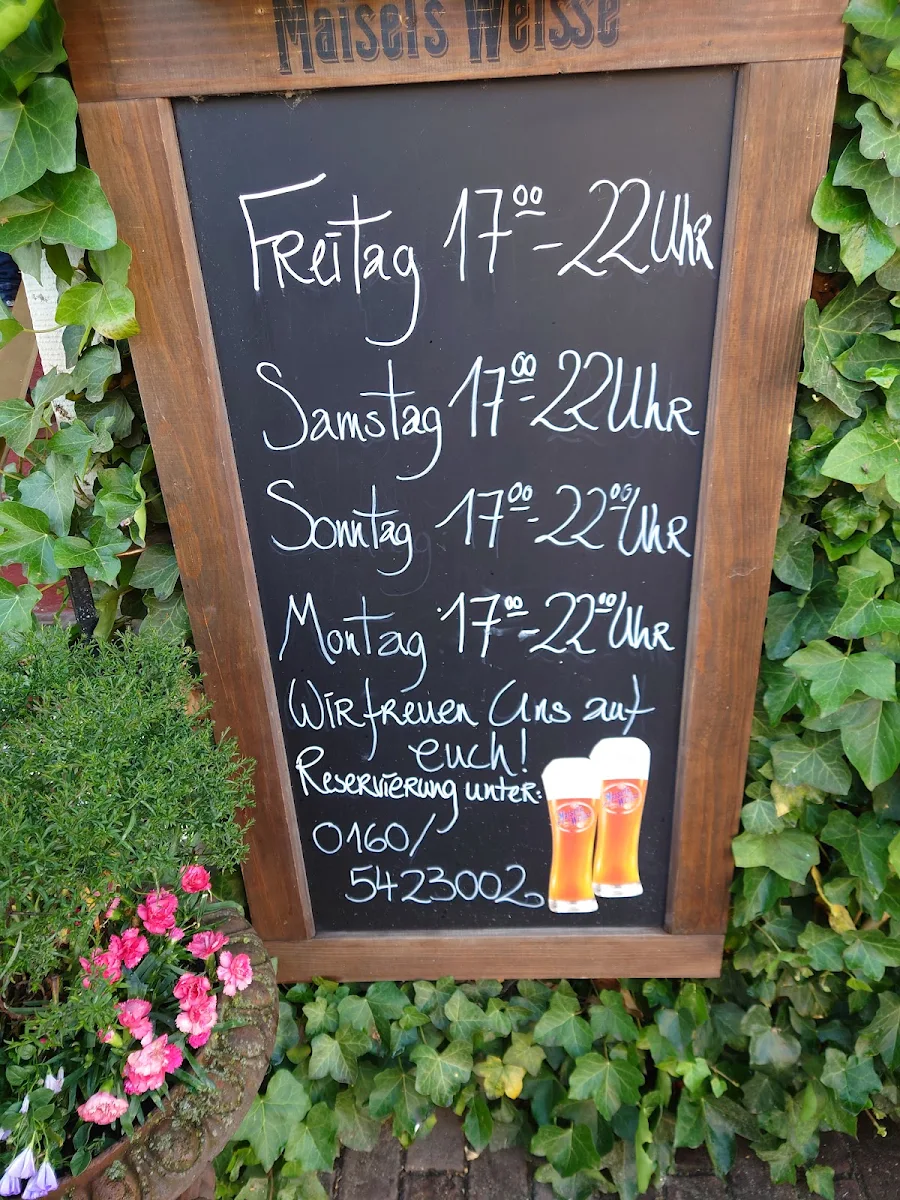 Maisel's Weisse
Freitag 17⁰⁰ - 22 Uhr
Samstag 17⁰⁰ - 22 Uhr
Sonntag 17⁰⁰ - 22⁰⁰ Uhr
Montag 17⁰⁰ - 22⁰⁰ Uhr
Wir freuen Uns auf
euch!
Reservierung unter:
0160/
5423002